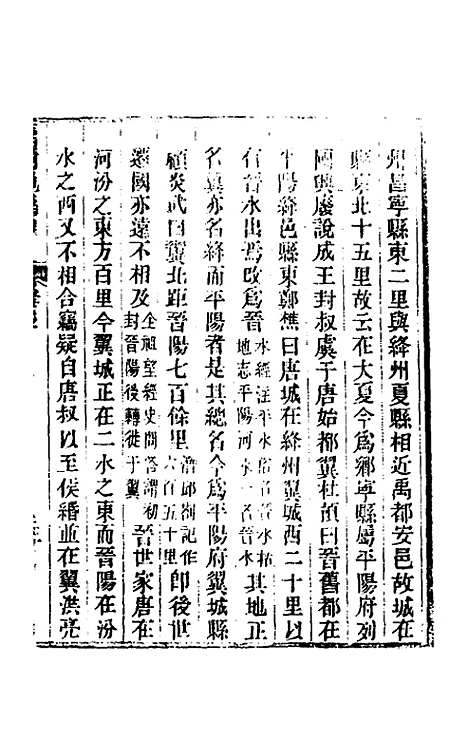 州昌寧縣東二里與絳州夏縣相近禹都安邑故城在
縣東北十五里故云在大夏今爲鄉寧縣屬平陽府列
國興廢說成王封叔虞于唐始都翼杜預曰晉舊都在
平陽絳邑縣東鄭樵曰唐城在絳州翼城西二十里以
有晉水出焉改爲晉水經注平水俗名晉水括地志平陽河水一名晉水其地正
名翼亦名絳而平陽者是其總名今爲平陽府翼城縣
顧炎武曰翼北距晉陽七百餘里潛邱劄記作六百五十里即後世
遷國亦遠不相及全祖望經史問答謂初封晉陽後轉徙于翼晉世家唐在
河汾之東方百里今翼城正在二水之東而晉陽在汾
水之西又不相合竊疑自唐叔以至侯緡並在翼洪亮